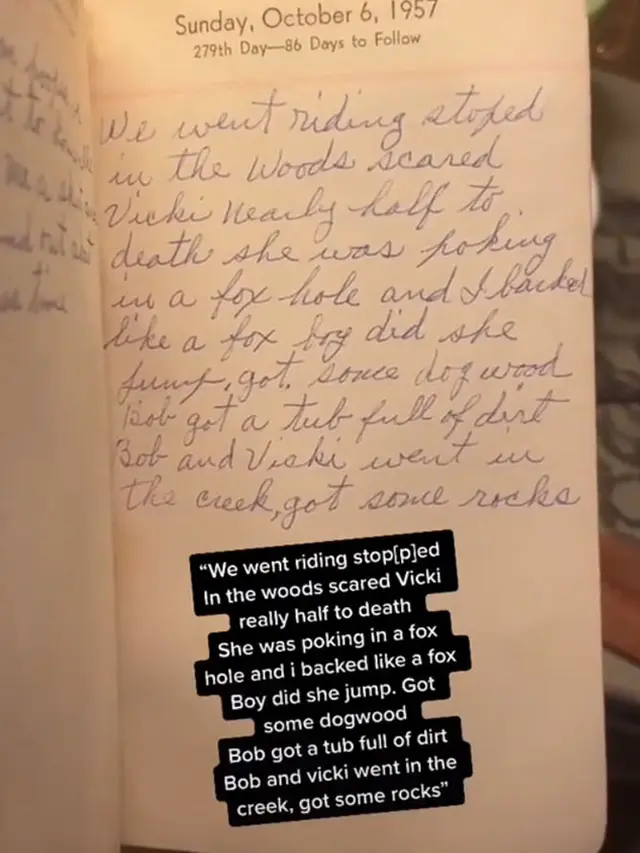 Sunday, October 6, 1957
279th Day—86 Days to Follow
We went riding stoped
in the Woods scared
Vicki Nearly half to
death she was poking
in a fox hole and I backed
like a fox boy did she
jump, got. some dog wood
Bob got a tub full of dirt
Bob and Vicki went in
the creek, got some rocks
“We went riding stop[p]ed
In the woods scared Vicki
really half to death
She was poking in a fox
hole and i backed like a fox
Boy did she jump. Got
some dogwood
Bob got a tub full of dirt
Bob and vicki went in the
creek, got some rocks”